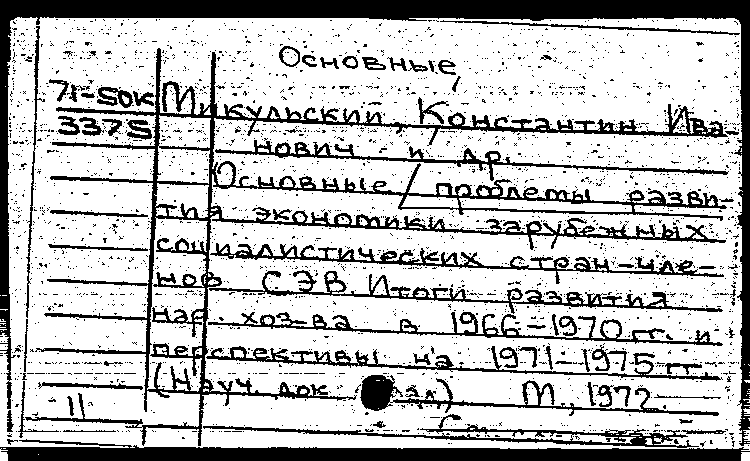 Основные
71-SOK Микульский, Константин Ива-
3375
нович и др.
Основные / проблемы разви-
тия экономики зарубежных
социалистических стран-чле-
нов СЭВ. Итоги развития
нар. хоз-ва в 1966-1970 гг. и
перспективы на 1971-1975 гг.
(Науч. док ад) М., 1972.
11